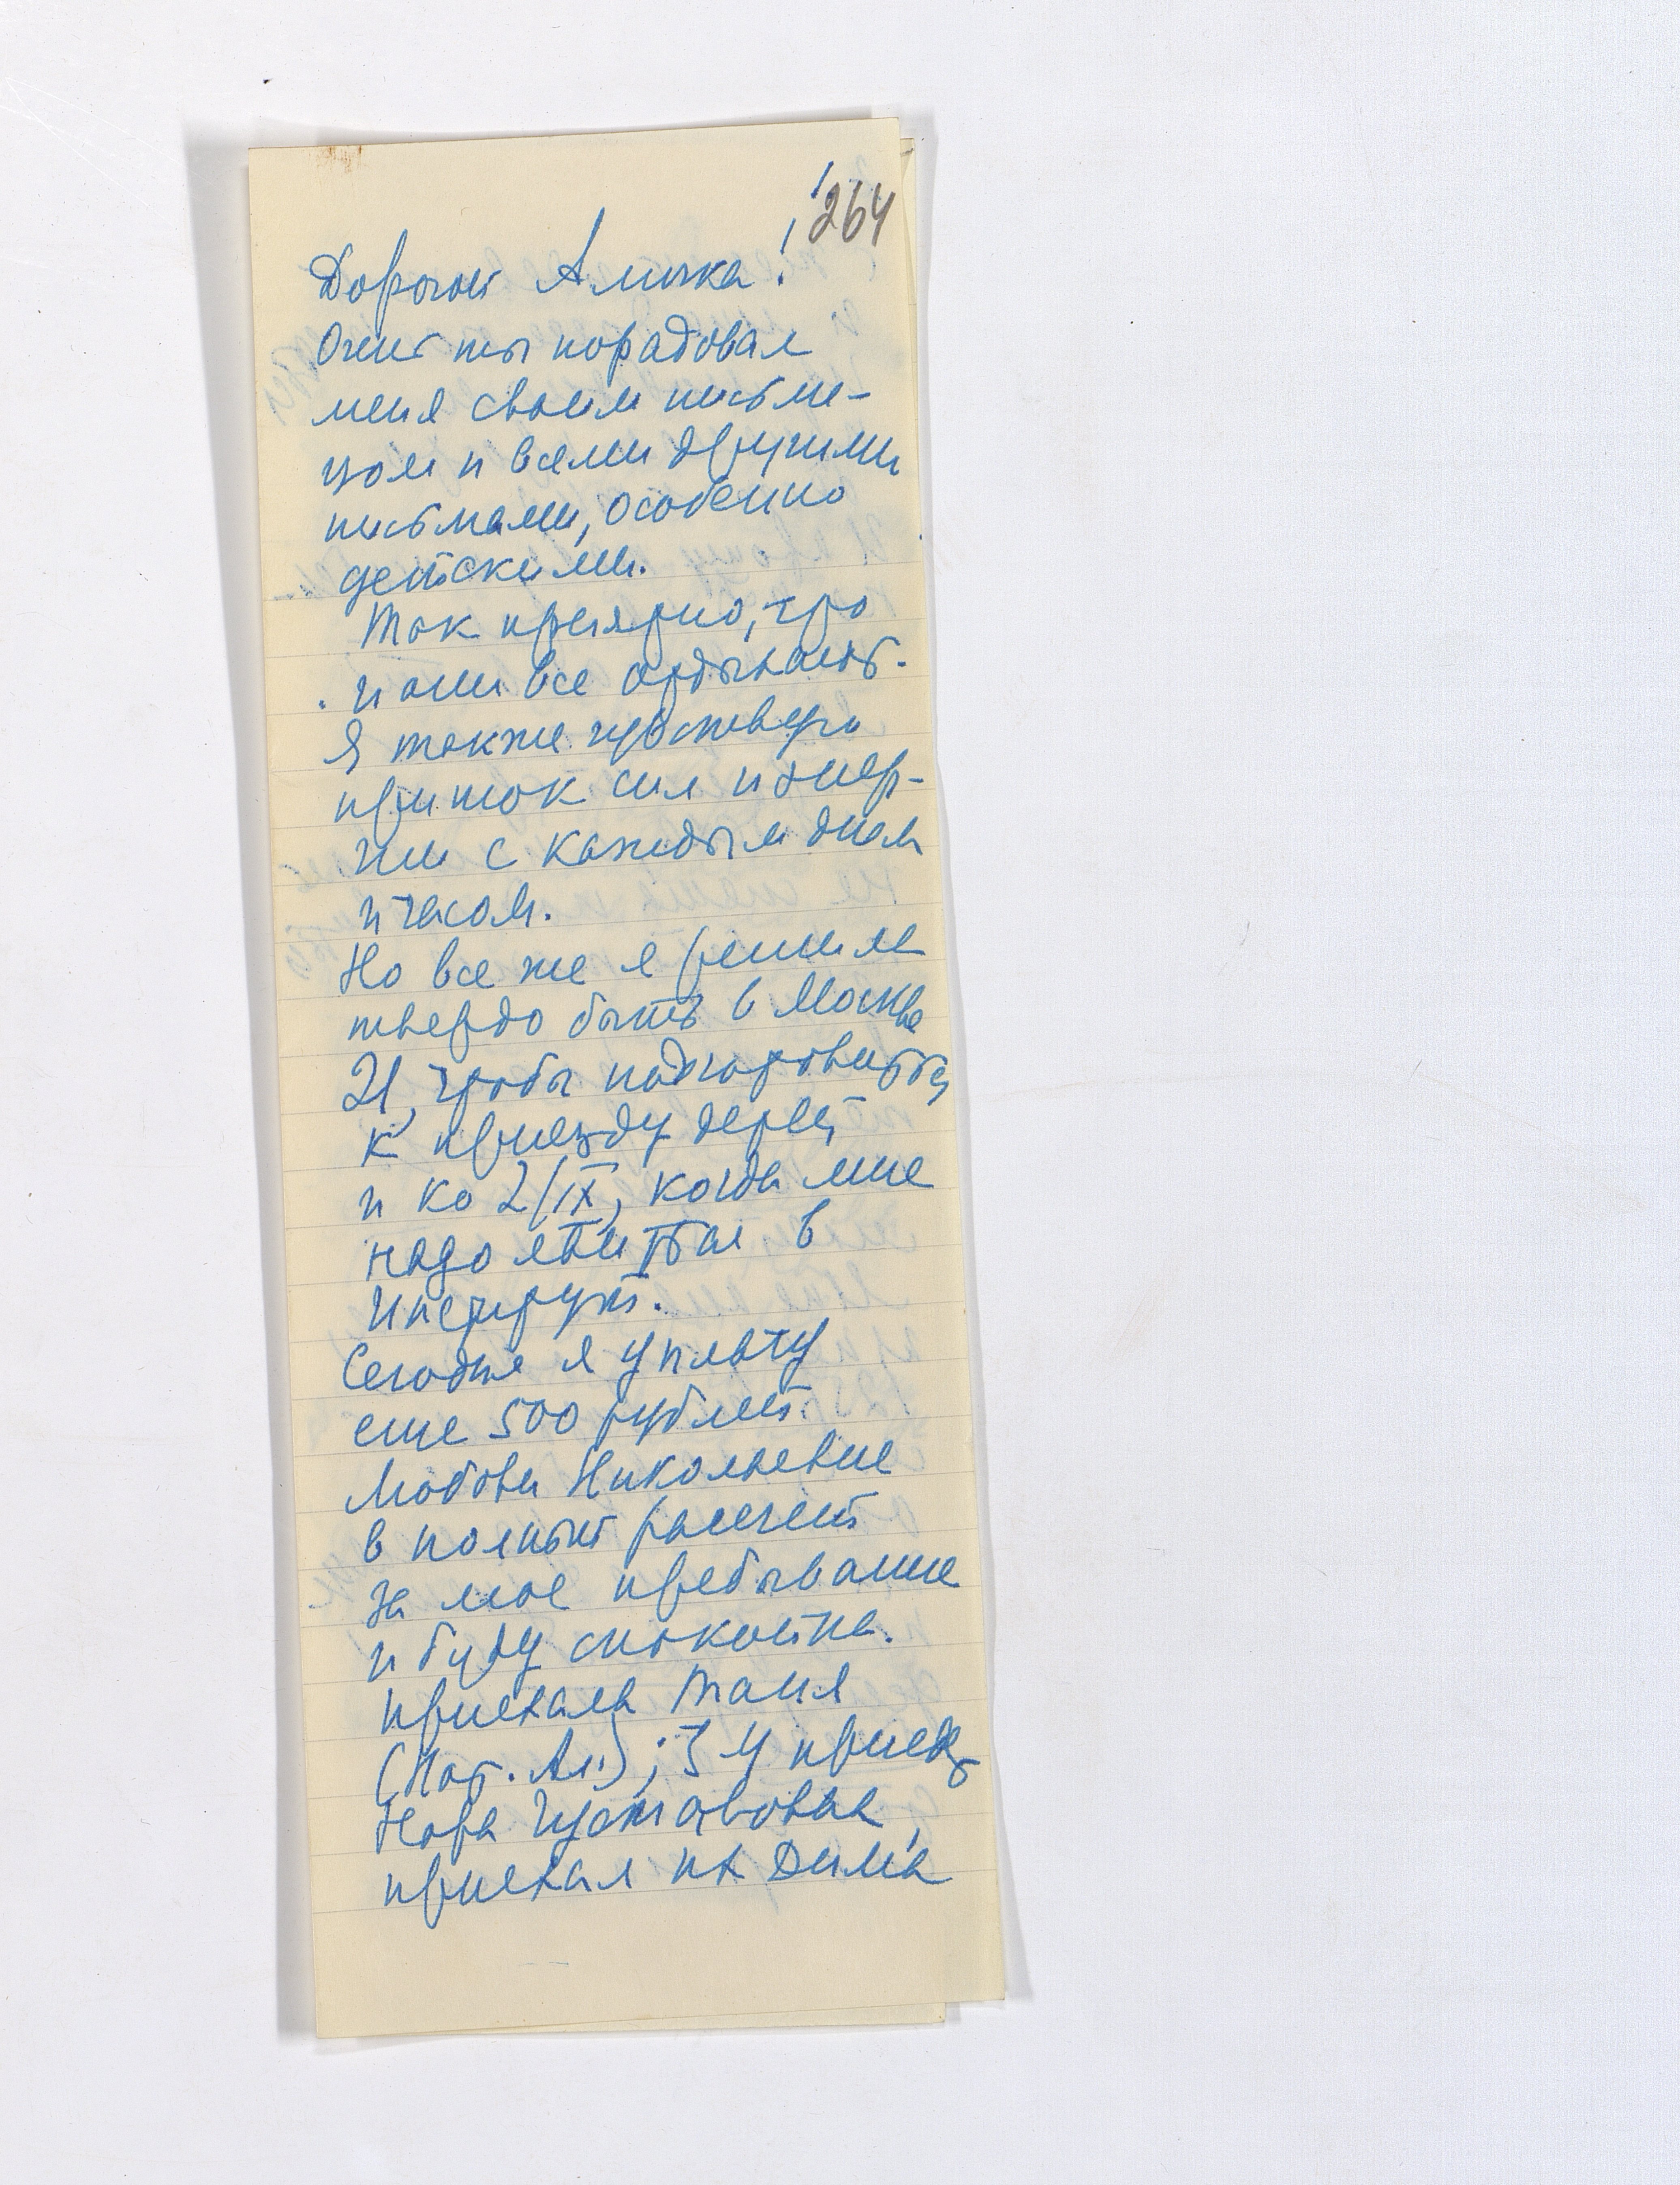 264
Дорогой Алочка!
Очень ты порадовал
меня своим письме-
цом и всеми другими
письмами, особенно
детскими.
Так приятно, что
и они все отдыхают.
Я также чувствую
приток сил и энер-
гии с каждым днем
и часом.
Но все же я решила
твердо быть в Москве
21, чтобы подготовиться
к приезду детей
и ко 2/IX, когда мне
надо явиться в
Институт.
Сегодня я уплачу
еще 500 рублей
Любови Николаевне
в полный рассчет
за мое пребывание
и буду спокойна.
Приехала Таня
(Нат. Ал.); 3 ч приедет
Нора Густавовна,
приехал их Дима